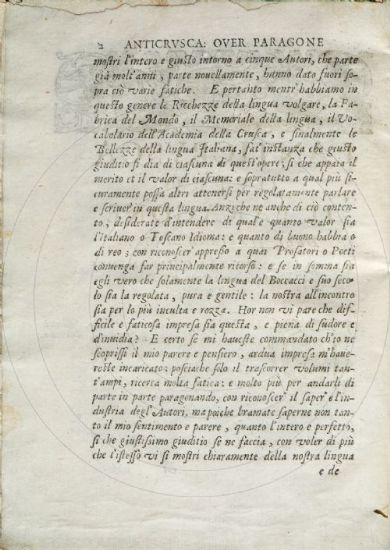 2 ANTICRVSCA: OVER PARAGONE
mostri l'intero e giusto intorno a cinque Autori, che parte
già molt'anni, parte nouellamente, hanno dato fuori so-
pra ciò varie fatiche. E pertanto mentr' habbiamo in
questo genere le Ricchezze della lingua volgare, la Fa-
brica del Mondo, il Memoriale della lingua, il Vo-
cabolario dell'Academia della Crusca, e finalmente le
Bellezze della lingua Italiana, fai' instanza che giusto
giuditio si dia di ciascuna di quest'opere; sì che appaia il
merito et il valor di ciascuna: e sopratutto a qual più si-
curamente possa altri attenersi per regolatamente parlare
e scriuer in questa lingua. Anzi che ne anche di ciò conten-
to, desiderate d'intendere di qual'e quanto valor sia
l'Italiano o Toscano Idioma: e quanto di buono habbia o
di reo; con riconoscer appresso a quai Prosatori o Poeti
conuenga far principalmente ricorso: e se in somma sia
egli vero che solamente la lingua del Boccacci e suo seco-
lo sia la regolata, pura e gentile: la nostra all'incontro
sia per lo più inculta e rozza. Hor non vi pare che dif-
ficile e faticosa impresa sia questa, e piena di sudore e
d'inuidia? E certo se mi haueste commandato ch'io ne
scoprissi il mio parere e pensiero, ardua impresa m'haue-
reste incaricato: posciache solo il trascorrer volumi tan-
t'ampi, ricerca molta fatica: e molto più per andarli di
parte in parte paragonando, con riconoscer' il saper' e l'in-
dustria degl'Autori, ma poiche bramate saperne non tan-
to il mio sentimento e parere, quanto l'intero e perfetto,
sì che giustissimo giuditio se ne faccia, con voler di più
che l'istesso vi si mostri chiaramente della nostra lingua
e de